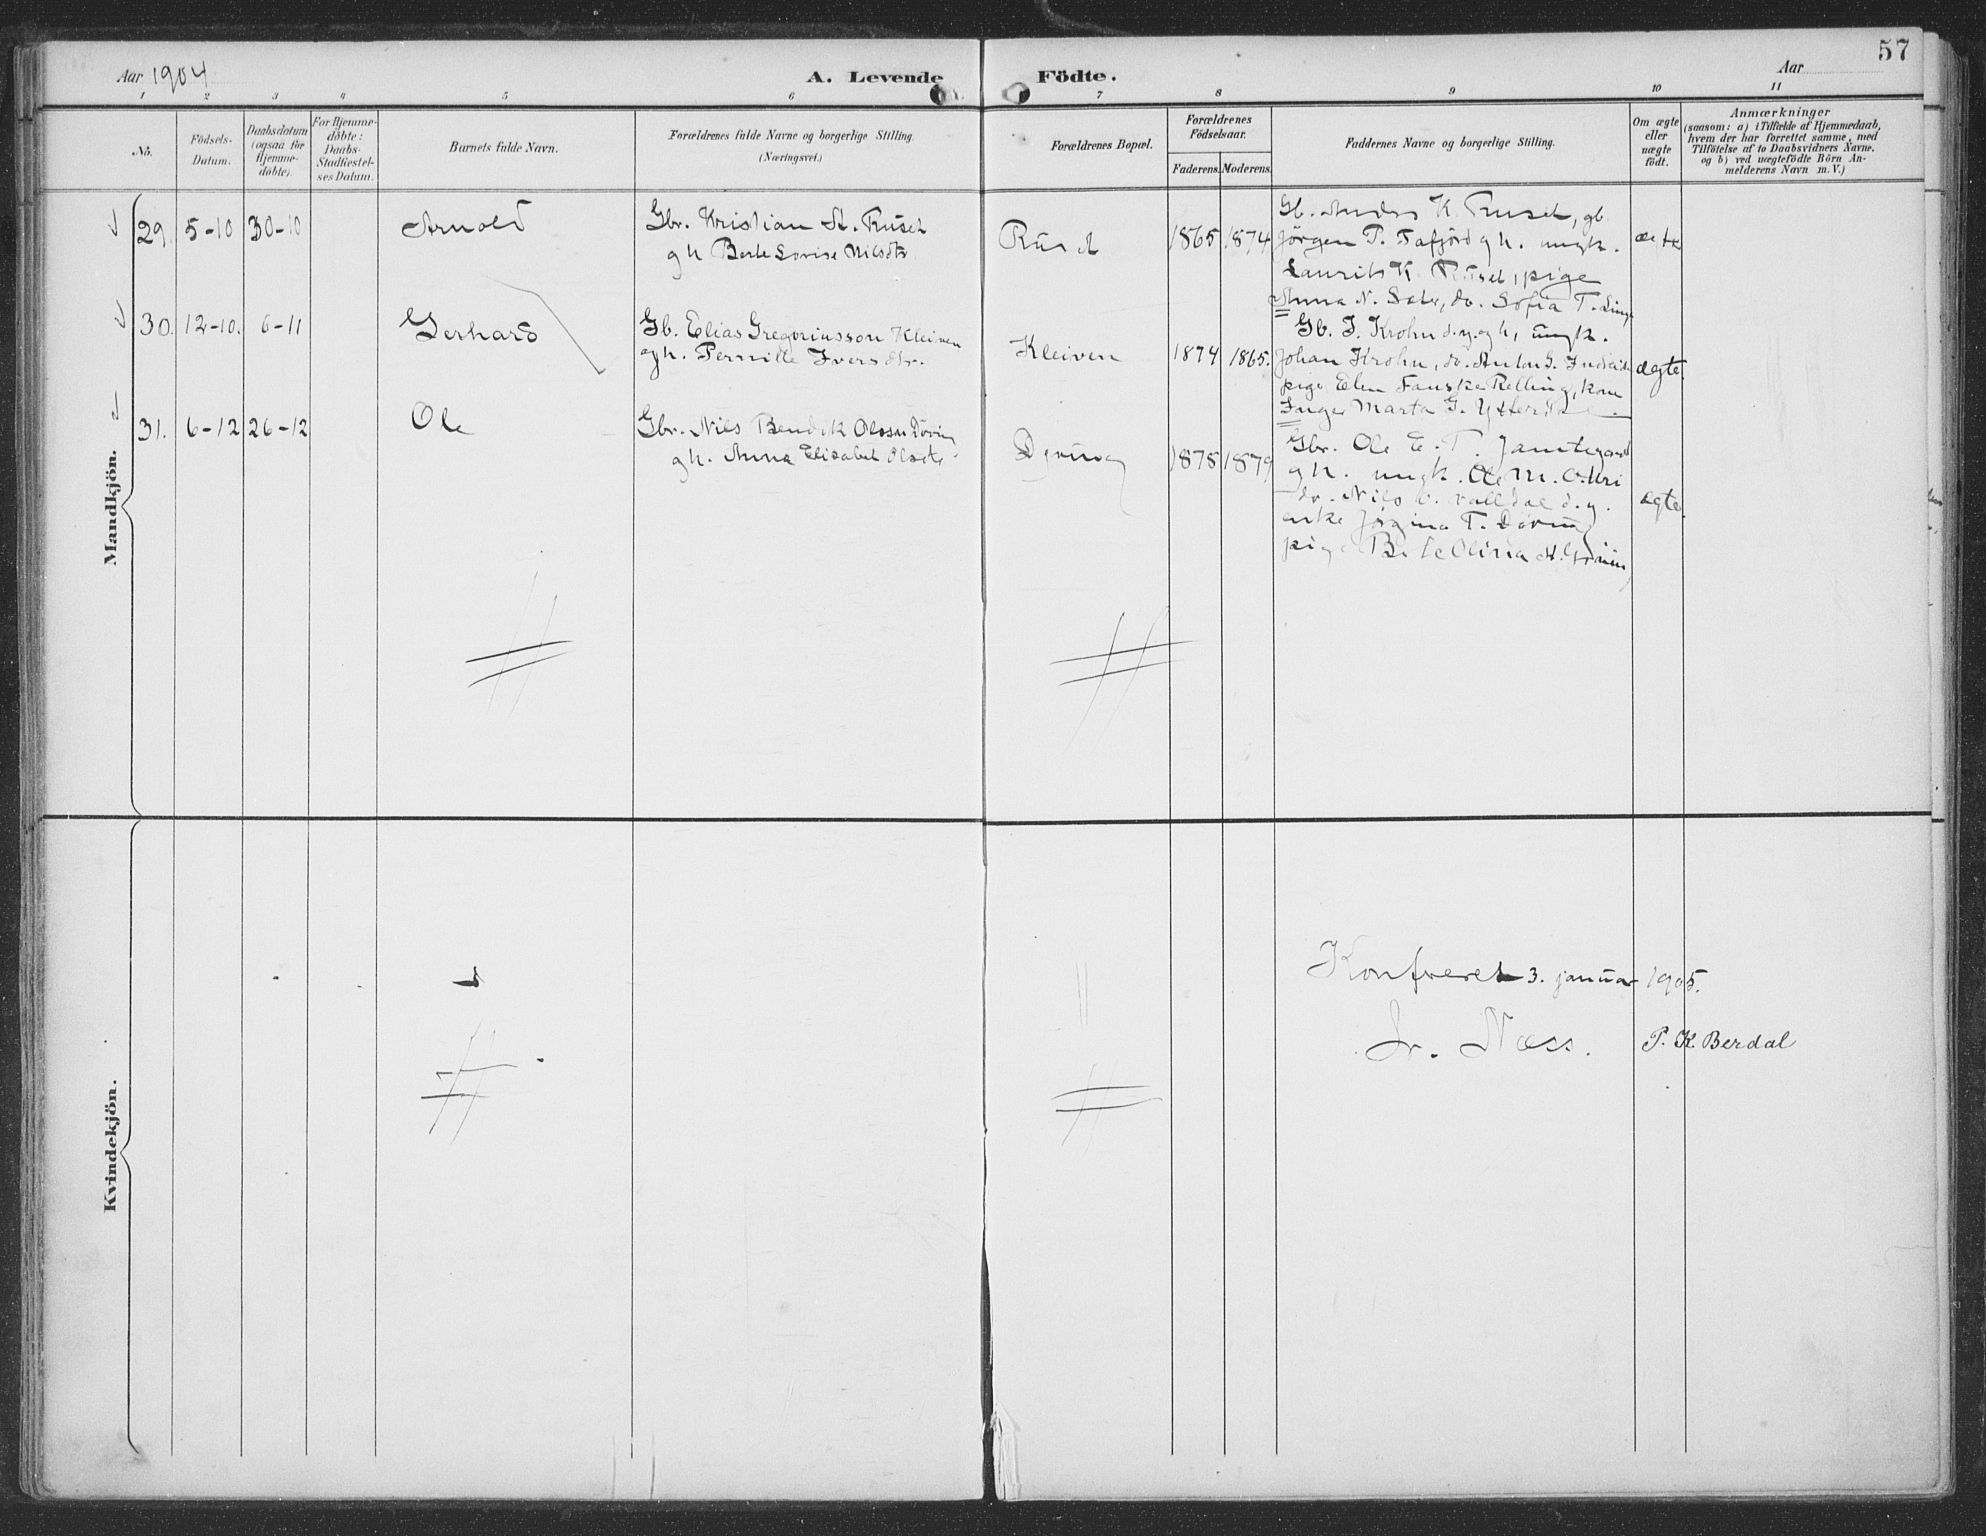 57
Aar 1904
A. Levende Födte.
Aar
1 2 3 4 5 6 7 8 9 10 11
No.
Födsels-Datum.
Daabsdatum (ogsaa for Hjemme-döbte).
For Hjemme-döbte: Daabs-Stadfæstel-ses Datum.
Barnets fulde Navn.
Forældrenes fulde Navne og borgerlige Stilling.
(Næringsvei.)
Forældrenes Bopæl.
Forældrenes Födselsaar.
Faderens. Moderens.
Faddernes Navne og borgerlige Stilling.
Om ægte eller uægte födt.
Anmærkninger
(saasom: a) i Tilfælde af Hjemmedaab,
hvem der har forrettet samme, med
Tilföielse af to Daabsvidners Navne,
og b) ved uægtefödte Börn An-
melderens Navn m. V.)
Mandkjön.
29. 5-10 30-10 Arnold
Gbr. Kristian A. Ruset
gh Berte Lovise Nilsdtr
Ruset 1865 1874
Gb. Anders K. Ruset, gb.
Jörgen P. Tafjord gh. ungk.
Laurits K. Ruset, pige
Anna N. Sæter, do. Sofia T. Linge
ægte
30. 12-10. 6-11 Gerhard
Gb. Elias Gregoriusson Kleiven
ogh. Pernille Iversdtr.
Kleiven 1874 1865.
Gb. J. Krohn d.y. ogh, ungk.
Johan Krohn, do. Anton G.
pige Elen Fauske Relling, kone
Inger Marta G. Ytterdal
ægte.
31. 6-12 26-12 Ole
Gbr. Nils Bendik Olsson Döving
gh. Anna Elisabet Olsdtr
Döving 1878 1879
Gbr. Ole E. T. Jamtegard
gh. ungk. Ole M. O. Uri
do. Nils O. Valldal d.y.
enke Jörgine T. Döving
pige Berte Olina
ægte.
Kvindekjön.
Konfereret 3. januar 1905.
Jr. Næss. P. K. Berdal